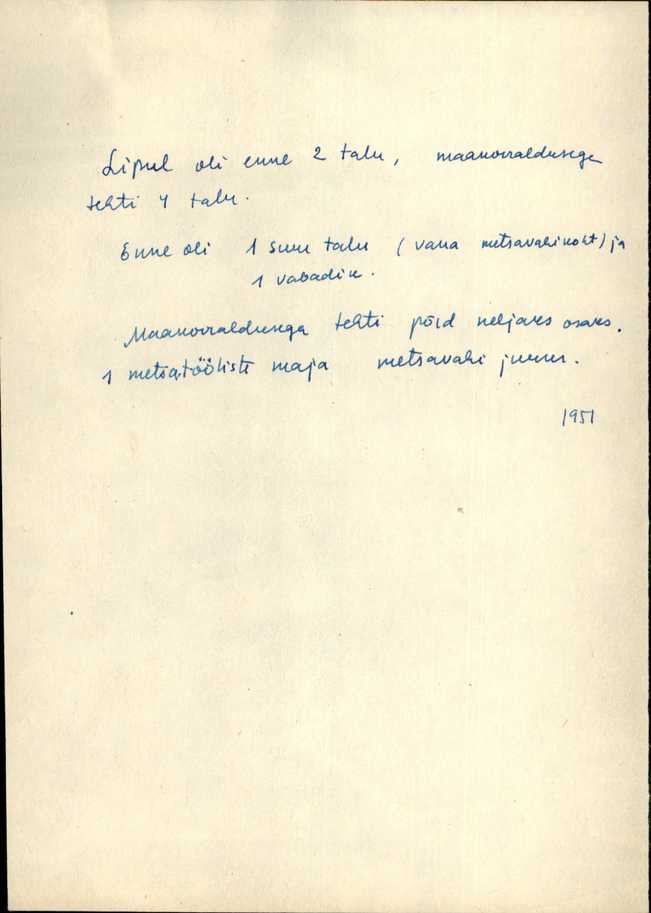 Lipul oli enne 2 talu, maakorraldusega
tehti 4 talu.
Enne oli 1 suur talu (vana metsavahikoht) ja
1 vabadik.
Maakorraldusega tehti põld neljaks osaks.
1 metsatööliste maja metsavahi juures.
1951